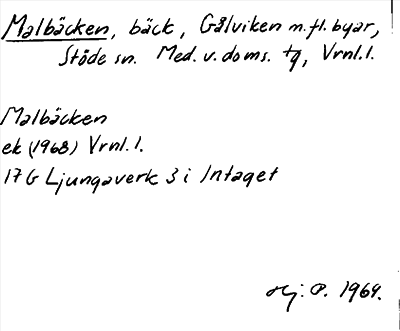 Malbäcken, bäck, Gålviken m.fl. byar,
Stöde sn. Med. v. doms. tg, Vrnl. l.
Malbäcken
ek (1968) Vrnl. l.
17 G Ljungaverk 3 i Intaget
Hj. P. 1969.